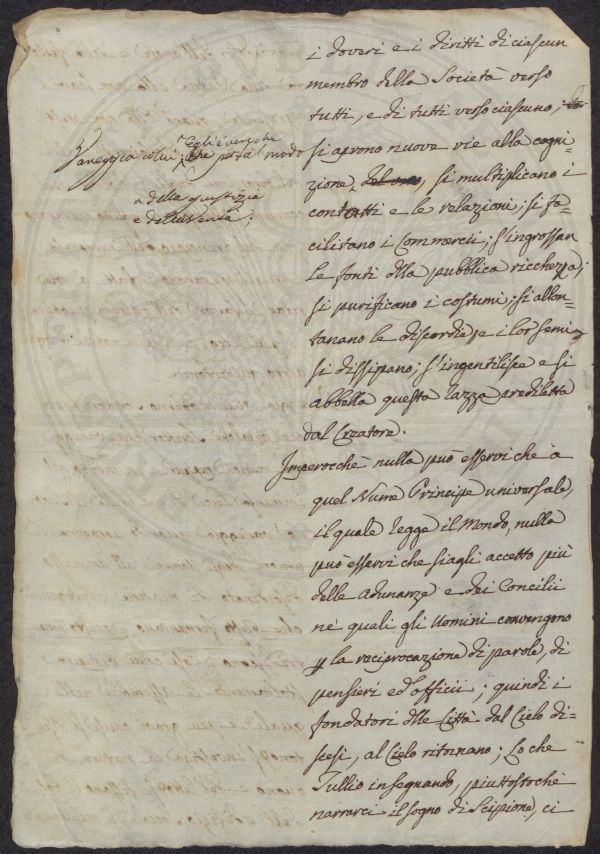 i doveri e i diritti di ciascun
membro della Società verso
tutti, e di tutti verso ciascuno;
Vaneggia colui; Egli è vero che
che posta modo
si aprono nuove vie alla cogni-
zione, si multiplicano i
della giustizia
e della Verità;
contatti e le relazioni; si fa-
cilitano i Commercii; s'ingrossan
le fonti dlla pubblica ricchezza;
si purificano i costumi; si allon-
tanano le discordie, e i lor semi
si dissipano; s'ingentilisce e si
abbella questa razza prediletta
dal Creatore.
Imperocchè nulla può esservi che a
quel Nume Principe universale,
il quale regge il Mondo, nulla
può esservi che siagli accetto più
delle adunanze e dei Concilii
ne' quali gli Uomini convengono
p la reciprocazione di parole, di
pensieri ed officii; quindi i
fondatori dlle Città dal Cielo di-
scesi, al Cielo ritornano; Lo che
Tullio insegnando, piuttostochè
narrarci il sogno di Scipione, ci